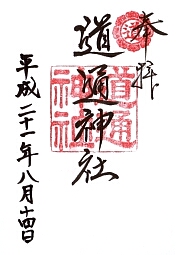 奉拝
道通神社
道通神社
平成二十一年八月十四日